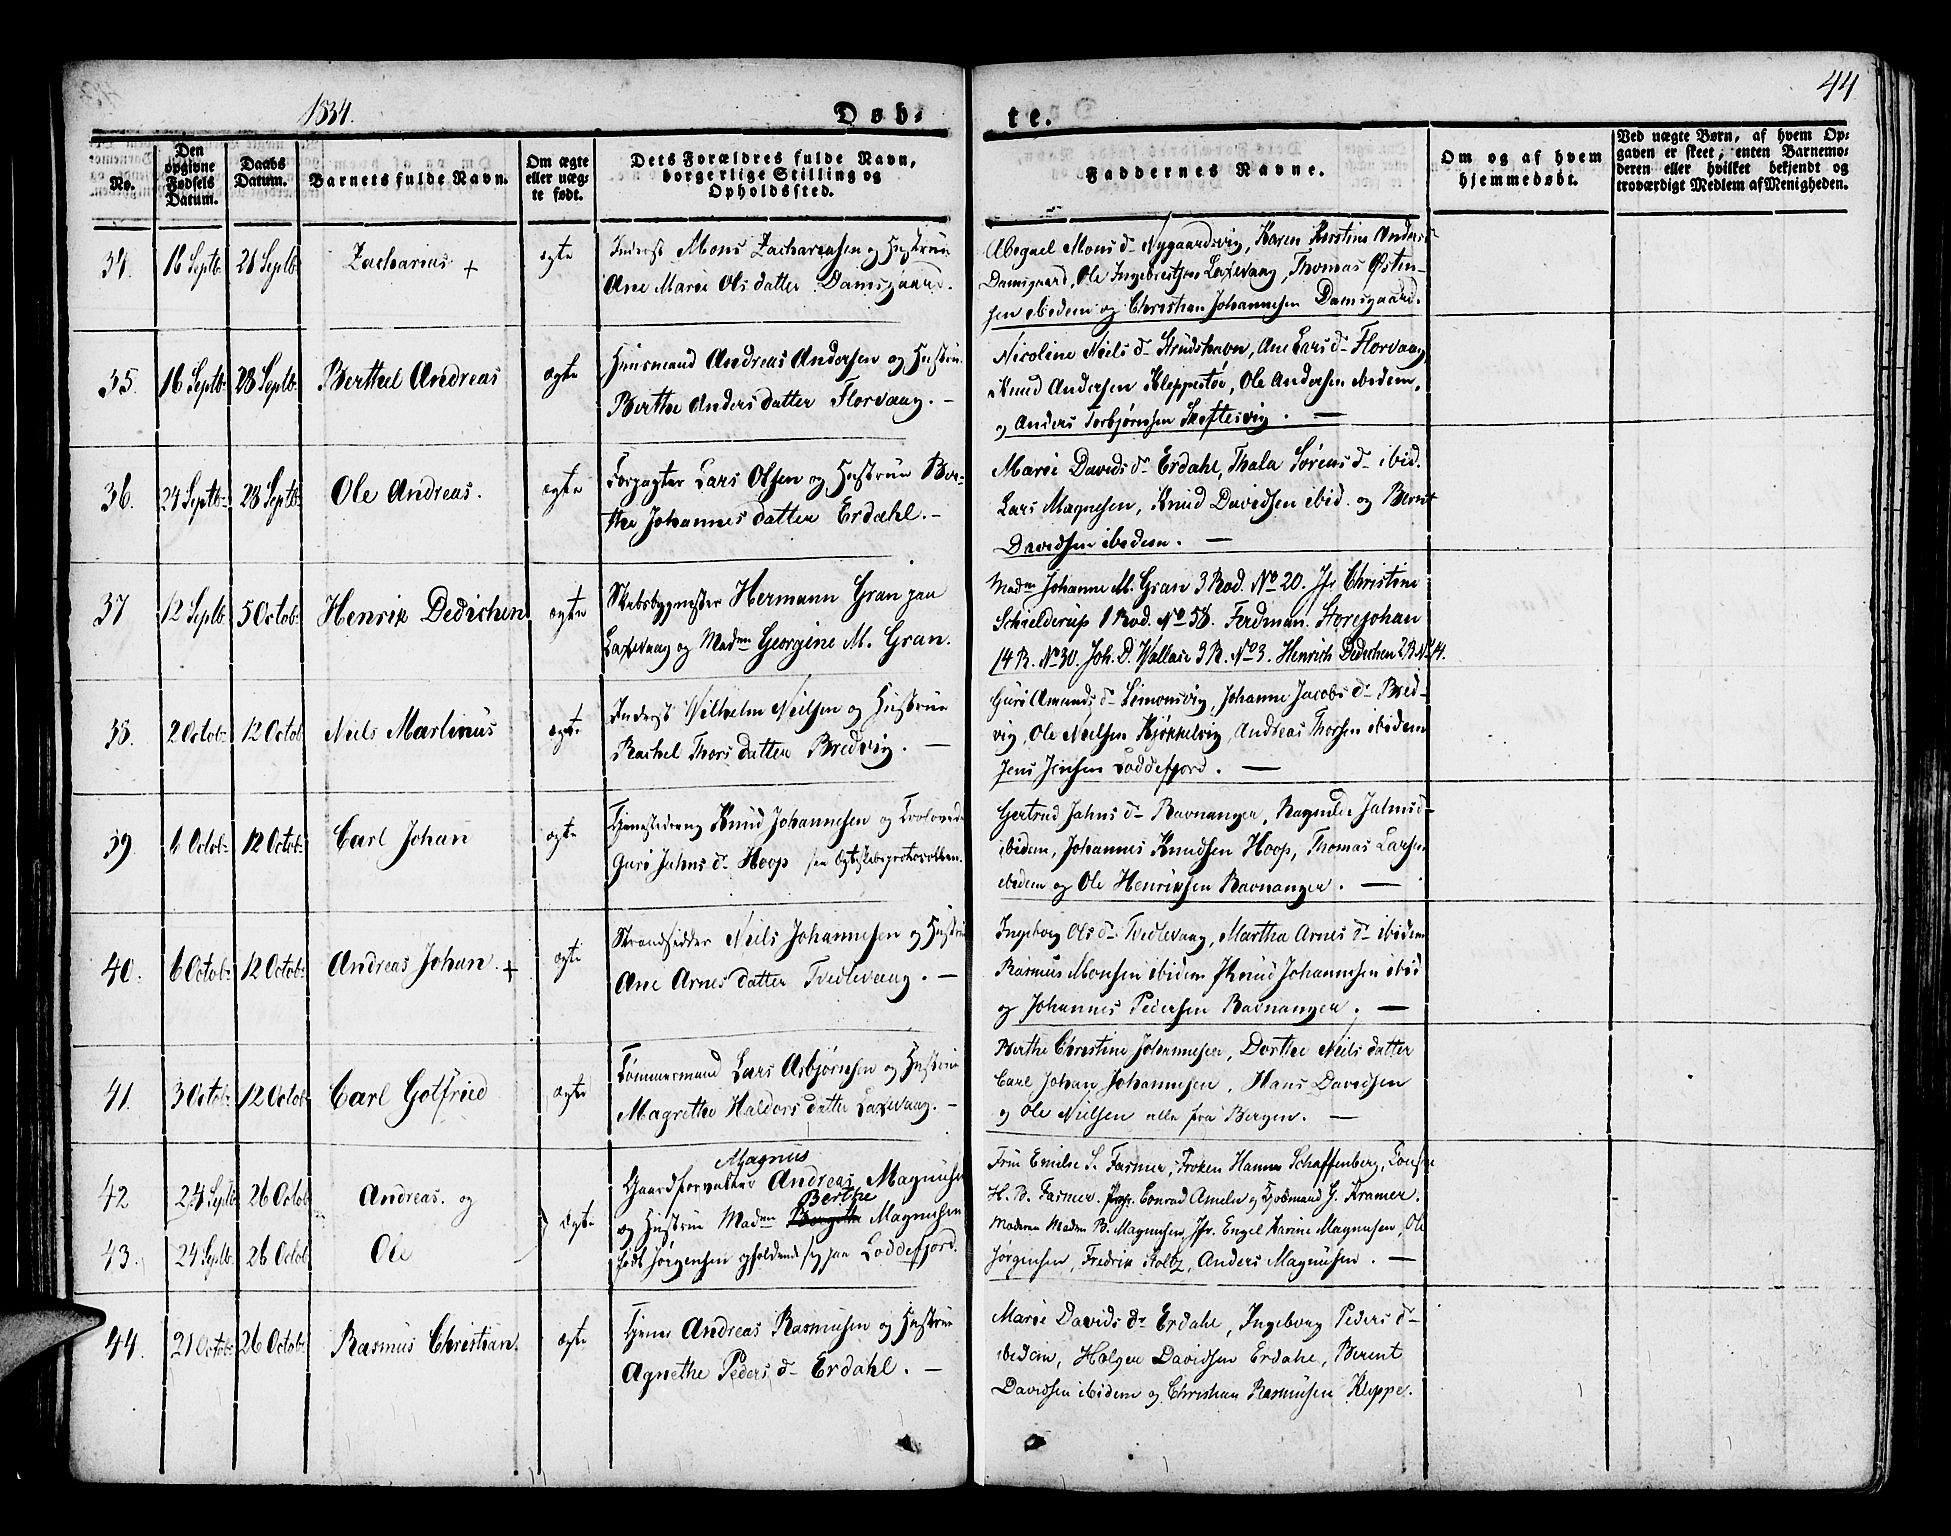 1834.
Døb-
te.
44
No.
Den opgivne Fødsels Datum.
Daabs Datum.
Barnets fulde Navn.
Om ægte eller uægte født.
Dets Forældres fulde Navn, borgerlige Stilling og Opholdssted.
Faddernes Navne.
Om og af hvem hjemmedøbt.
Ved uægte Børn, af hvem Opgaven er skeet; enten Barnemoderen eller hvilket bekjendt og troværdigt Medlem af Menigheden.
34. 16 Septb: 21 Septb: Zacharias + ægte
Inderst Mons Zachariasen og Hustrue
Ane Marie Olsdatter Damsgaard.
Abegael Mons d- Nygaardsvig, Karen Kirstine Anders-
Damsgaard, Ole Ingebrectsen Laxevaag, Thomas Østen-
sen ibidem og Christian Johannesen Damsgaard.
35. 16 Septb: 28 Septb: Berthel Andreas ægte
Huusmand Andreas Andersen og Hustrue
Berthe Andersdatter Florvaag. —
Nicoline Niels d- Strudshavn, Ane Lars d- Florvaag
Knud Andersen Kleppestø, Ole Andersen ibidem,
og Anders Torbjørnsen Skiftesvig. —
36. 24 Septb: 28 Septb: Ole Andreas. ægte
Forpagter Lars Olsen og Hustrue Ber-
the Johannesdatter Erdahl. —
Marie Davids d- Erdahl, Thala Sørens d- ibid.
Lars Magnesen, Knud Davidsen ibid. og Bernt
Davidsen ibidem. —
37 12 Septb: 5 Octob: Henrik Dedichen ægte
Skibsbygmester Hermann Gran paa
Laxevaag og Madm Georgine M. Gran.
Madm Johanne M. Gran 3 Rod. No 20. Jfr Christine
Schielderup 1 Rod. No 58. Ferdinan. Storejohan
14 R. No 30. Joh. D. Wallace 3 R. No 3. Henrich Dedichen 2 R No 14.
38. 2 Octob: 12 Octob: Neils Martinus ægte
Inderst Vilhelm Neilsen og Hustrue
Rachel Thorsdatter Bredvig. —
Guri Amunds d- Simonsvig, Johanne Jacobs d- Bred-
vig, Ole Neilsen Kjøkkelvig, Andreas Thorsen ibidem
Jens Jensen Loddefjord. —
39. 6 Octob: 12 Octob: Carl Johan ægte
Tjenestedreng Knud Johannesen og Trolovede
Guri Jahns d- Hoop see Ægteskabsprotocollen.
Gertrud Jahns d- Ravnanger, Ragnilde Jahnsd-
ibidem, Johannes Knudsen Hoop, Thomas Larsen
ibidem og Ole Henriksen Ravnanger. —
40. 6 Octob: 12 Octob: Andreas Johan. + ægte
Strandsidder Neils Johannesen og Hustrue
Ane Arnesdatter Tvedtevaag. —
Ingeborg Ols d- Tvedtevaag, Martha Arnes d- ibidem
Rasmus Monsen ibidem Knud Johannesen ibid
og Johannes Pedersen Ravnanger. —
41. 3 Octob: 12 Octob: Carl Gotfried ægte
Tømmermand Lars Asbjørnsen og Hustrue
Magrethe Haldorsdatter Laxevaag. —
Berthe Christine Johannesen, Dorthe Neilsdatter
Carl Johan Johannesen, Hans Davidsen
og Ole Nielsen alle fra Bergen. —
42 24 Septb: 26 Octob: Andreas. og
43. 24 Septb: 26 Octob: Ole ægte
Magnus
Gaardforvalter Andreas Magnusen
Berthe
og Hustrue Madm Magnusen
født Jørgensen opholdende sig paa Loddefjord.
Frue Emilie S. Fasmer, Frøken Hanna Schaffenberg, Consul
H. B. Fasmer. Conrad Ameln og G. Kramer.
Moderen Madm B. Magnusen, Jfr. Engel Karine Magnusen, Ole
Jørgensen, Fredrik Koltz, Anders Magnusen. —
44. 21 Octob: 26 Octob: Rasmus Christian. ægte
Tjener Andreas Rasmusen og Hustrue
Agnethe Peders d- Erdahl. —
Marie Davids d- Erdahl, Ingeborg Peders d-
ibidem, Holger Davidsen Erdahl, Berent
Davidsen ibidem og Christian Rasmusen Kleppe.